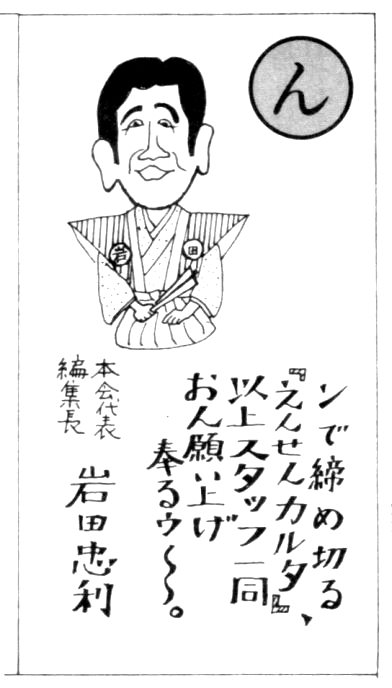 ん
岩
田
ンで締め切る
『えんせんカルタ』、
以上スタッフ一同
おん願い上げ
奉るゥ〜〜。
本会代表
編集長
岩田忠利